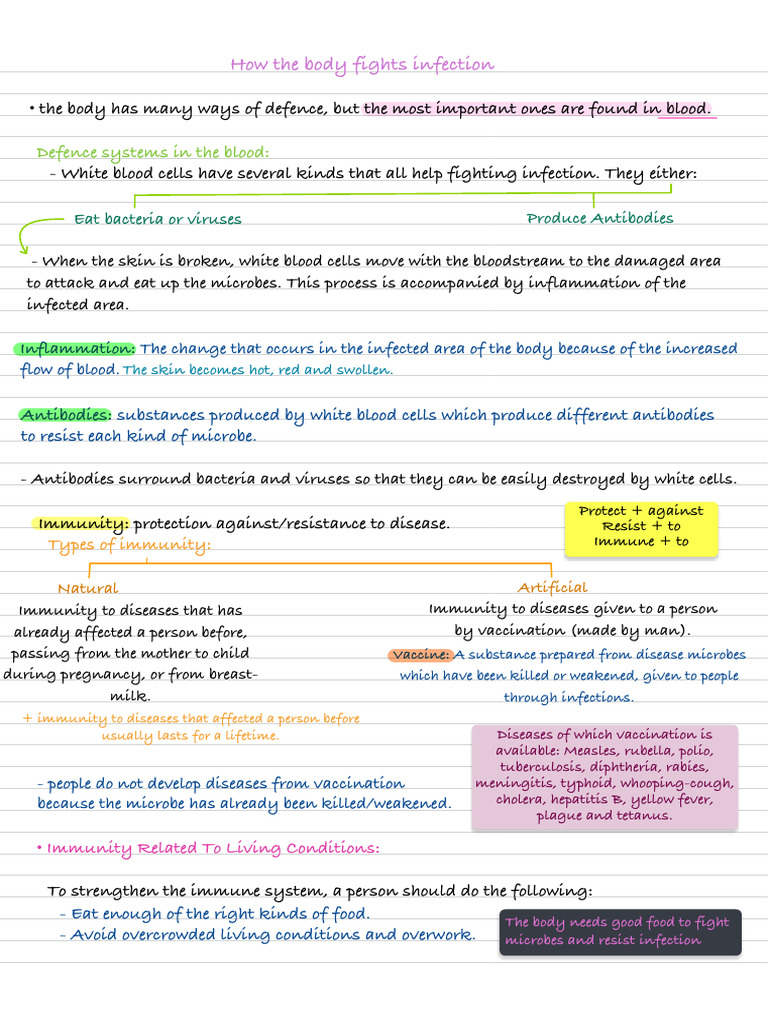 How the body fights infection
• the body has many ways of defence, but the most important ones are found in blood.
Defence systems in the blood:
- White blood cells have several kinds that all help fighting infection. They either:
Eat bacteria or viruses
Produce Antibodies
- When the skin is broken, white blood cells move with the bloodstream to the damaged area
to attack and eat up the microbes. This process is accompanied by inflammation of the
infected area.
Inflammation: The change that occurs in the infected area of the body because of the increased
flow of blood. The skin becomes hot, red and swollen.
Antibodies: substances produced by white blood cells which produce different antibodies
to resist each kind of microbe.
- Antibodies surround bacteria and viruses so that they can be easily destroyed by white cells.
Immunity: protection against/resistance to disease.
Protect + against
Resist + to
Immune + to
Types of immunity:
Natural
Immunity to diseases that has
already affected a person before,
passing from the mother to child
during pregnancy, or from breast-
milk.
+ immunity to diseases that affected a person before
usually lasts for a lifetime.
Artificial
Immunity to diseases given to a person
by vaccination (made by man).
Vaccine: A substance prepared from disease microbes
which have been killed or weakened, given to people
through infections.
Diseases of which vaccination is
available: Measles, rubella, polio,
tuberculosis, diphtheria, rabies,
meningitis, typhoid, whooping-cough,
cholera, hepatitis B, yellow fever,
plague and tetanus.
- people do not develop diseases from vaccination
because the microbe has already been killed/weakened.
• Immunity Related To Living Conditions:
To strengthen the immune system, a person should do the following:
- Eat enough of the right kinds of food.
- Avoid overcrowded living conditions and overwork.
The body needs good food to fight
microbes and resist infection